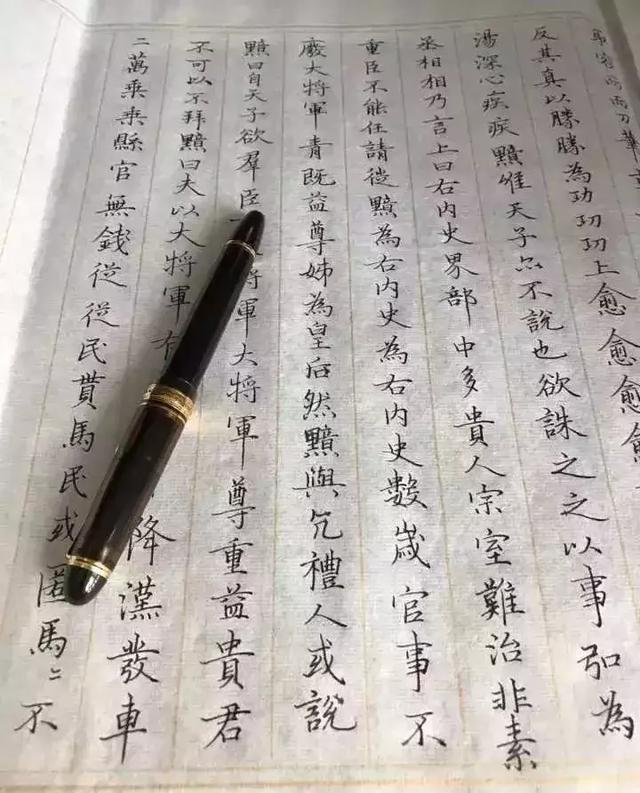 刀筆
反其真以勝勝為功功功上愈愈愈
湯深心疾疾黯唯天子亦不說也欲誅之之以事弘為
丞相相乃言上曰右內史界部中多貴人宗室難治非素
重臣不能任請徙黯為右內史為右內史數歲官事不
廢大將軍青既益尊姊為皇后然黯與亢禮人或說
黯曰自天子欲羣臣將軍大將軍尊重益貴君
不可以不拜黯曰夫以大將軍有降漢發車
二萬乘乘縣官無錢從從民貰馬民或匿馬二不